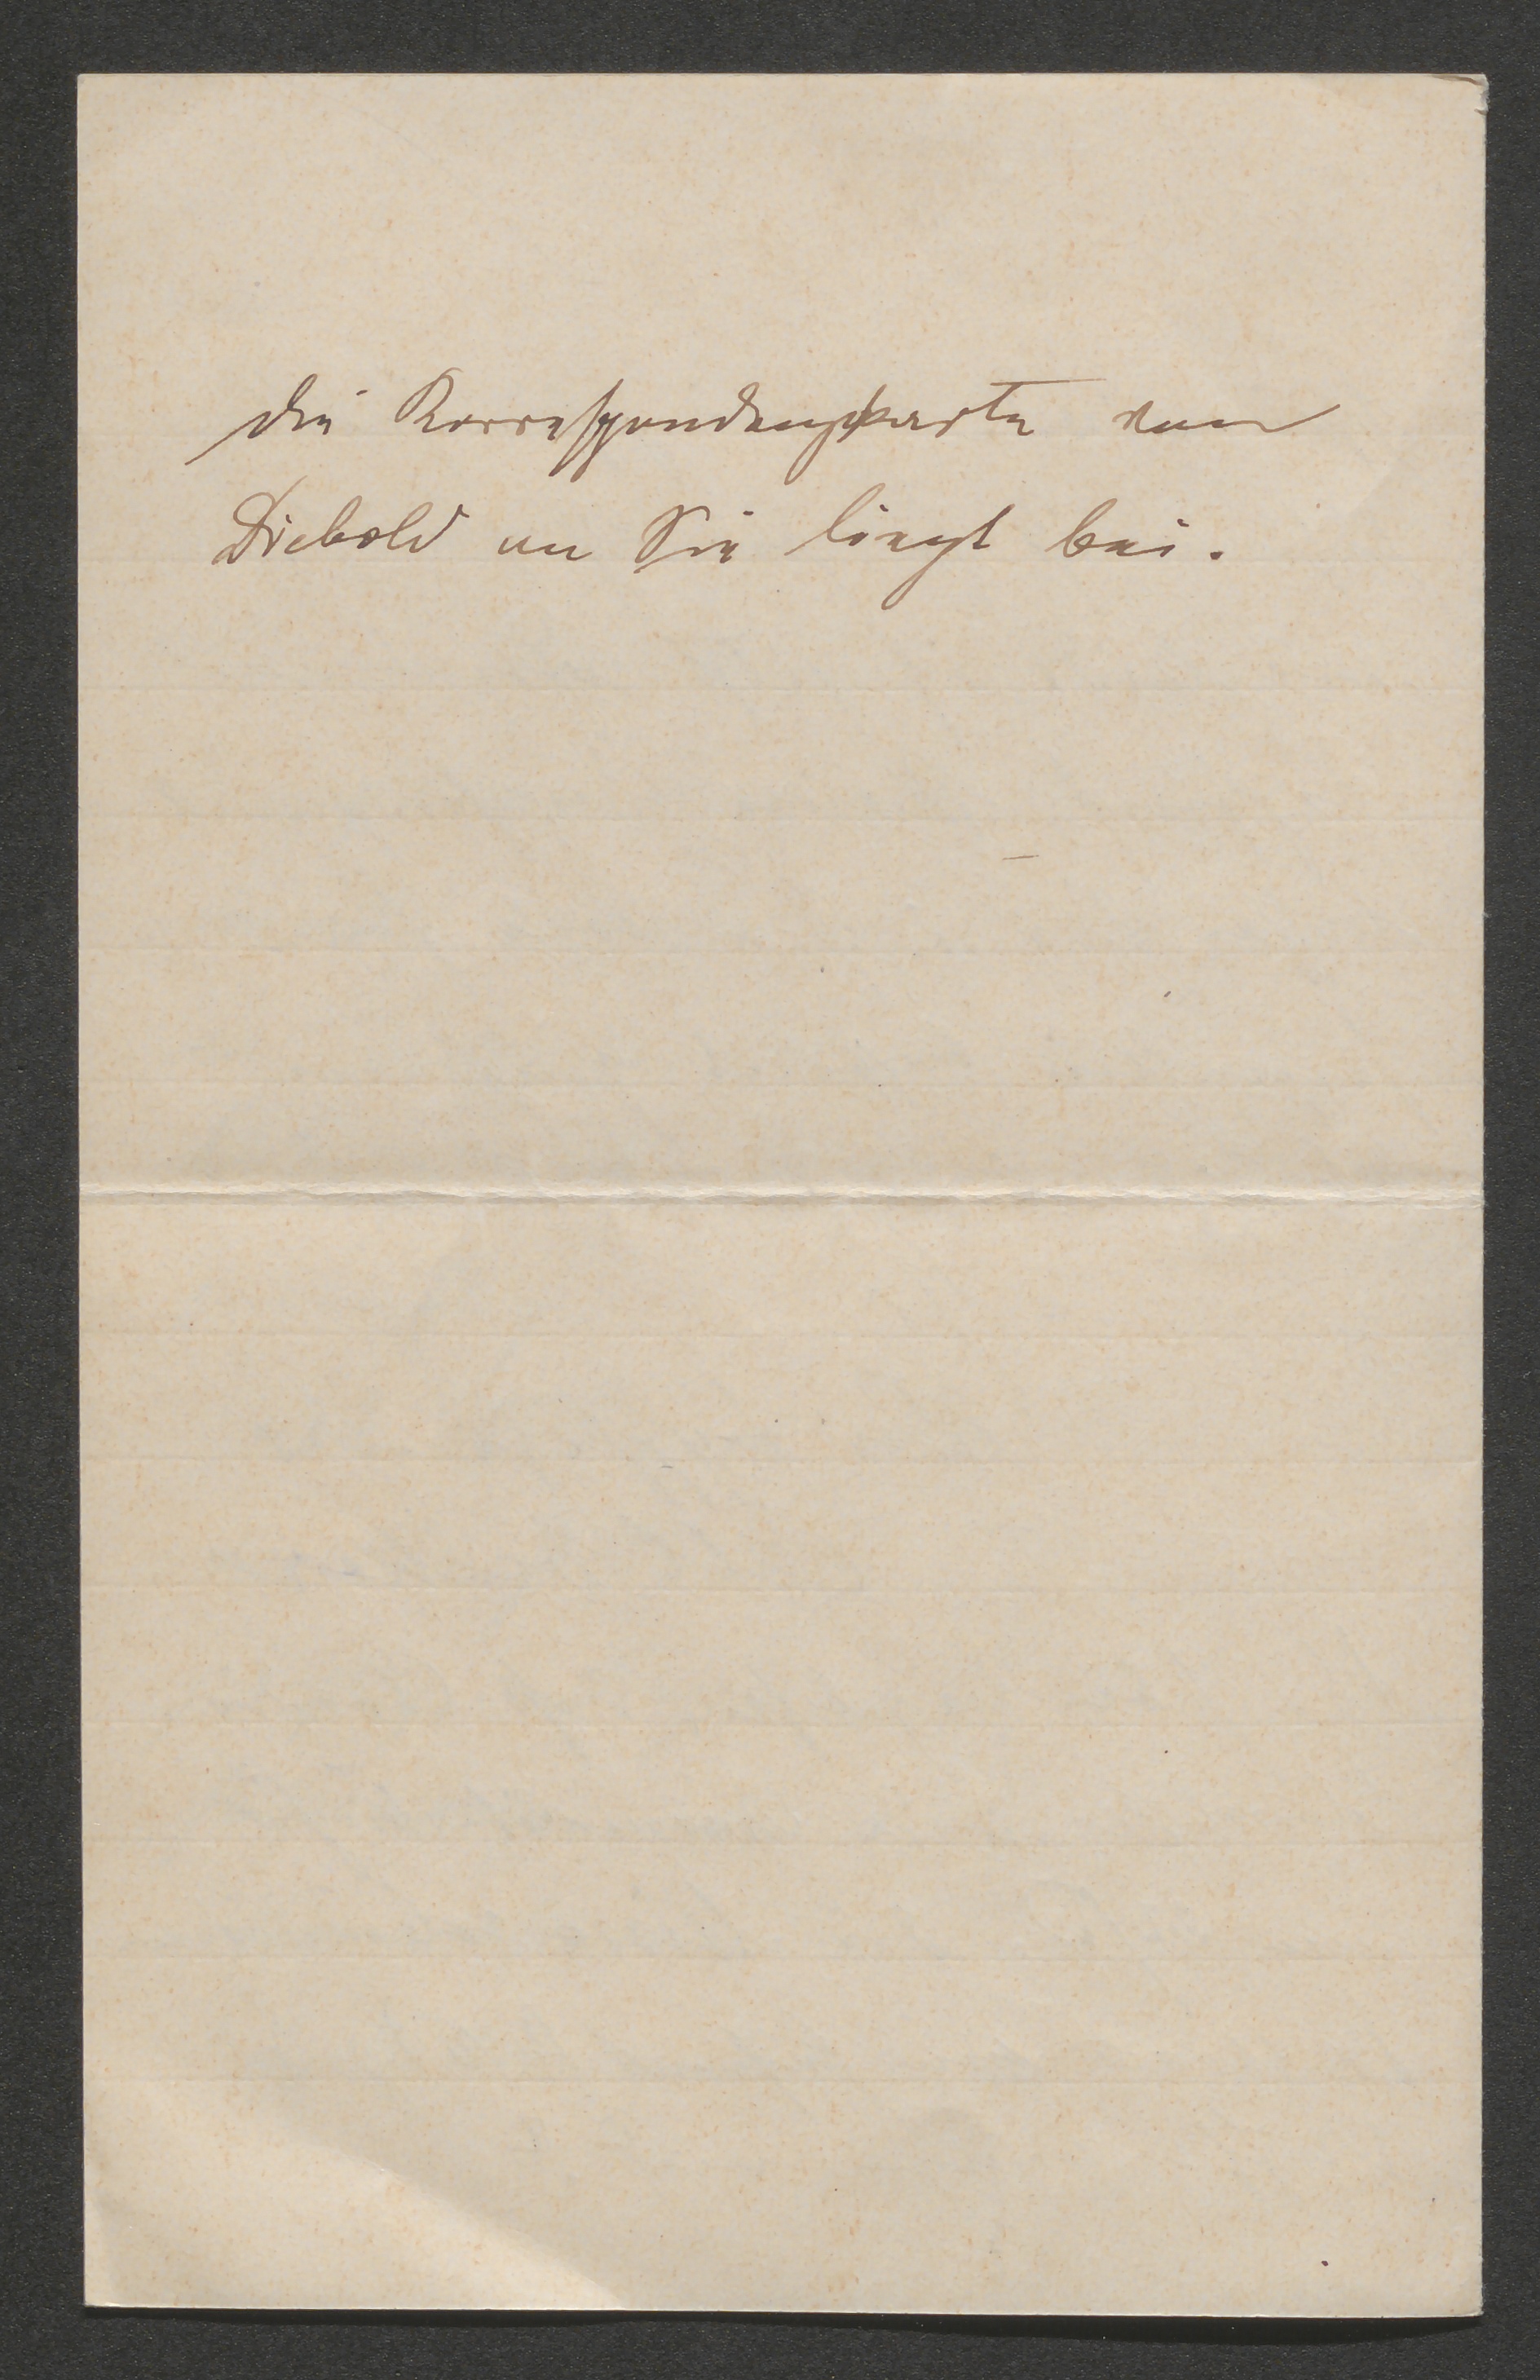 die Korrespondenzkarte von
Diebold an Sie liegt bei.